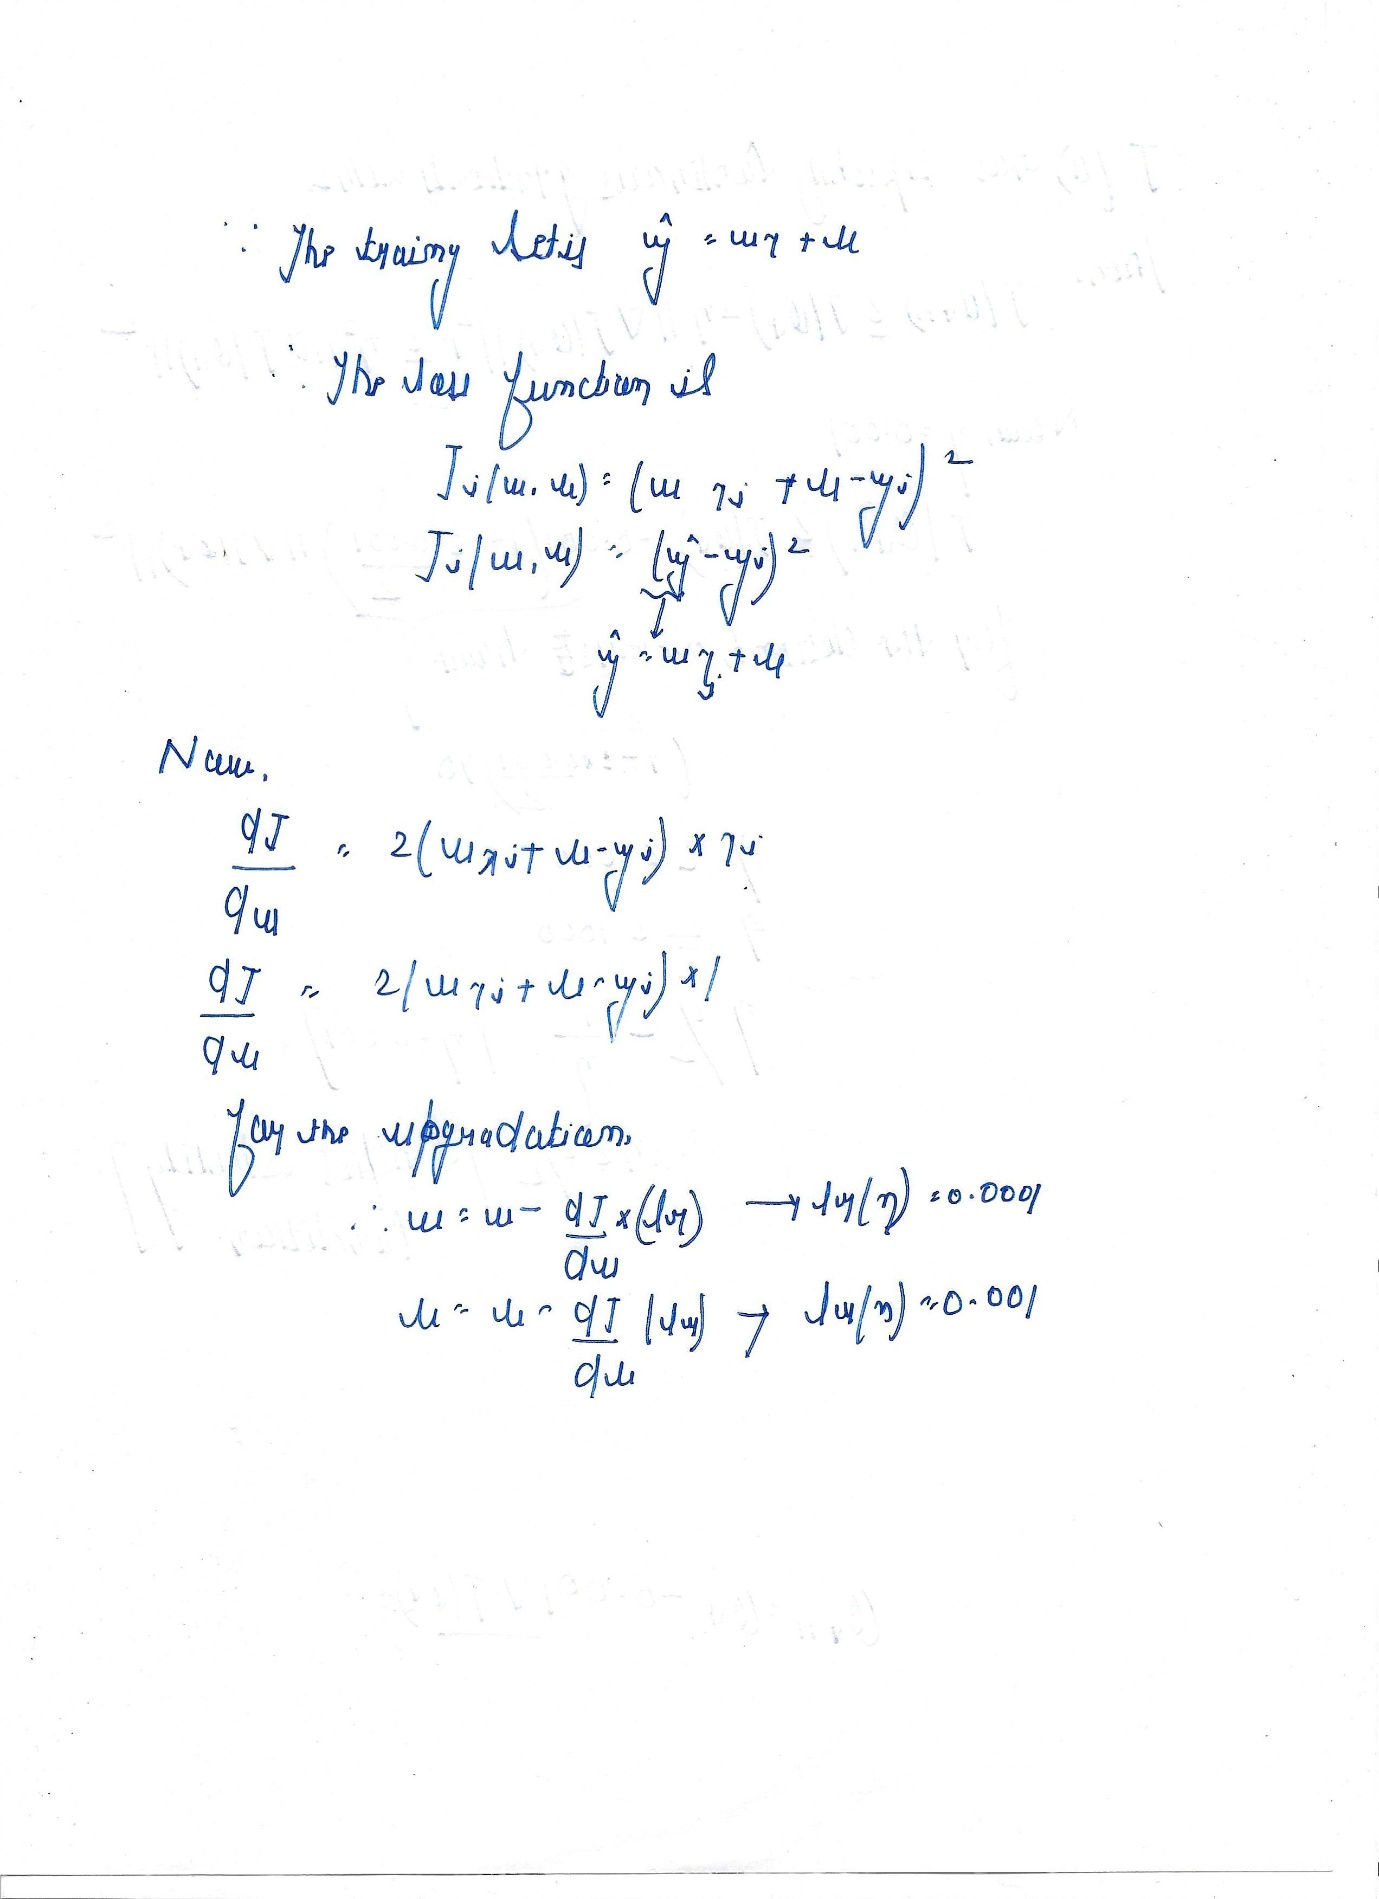 ∵ The training set is ŷ = wx + b
∵ The loss function is
Ji(w, b) = (w xi + b - yi)²
Ji(w, b) = (ŷ - yi)²
↓
ŷ = wxi + b
Now,
dJ/dw = 2(wxi + b - yi) × xi
dJ/db = 2(wxi + b - yi) × 1
For the upgradation,
∴ w = w - dJ/dw × (lr) → lr(η) = 0.0001
b = b - dJ/db (lr) → lr(η) = 0.001